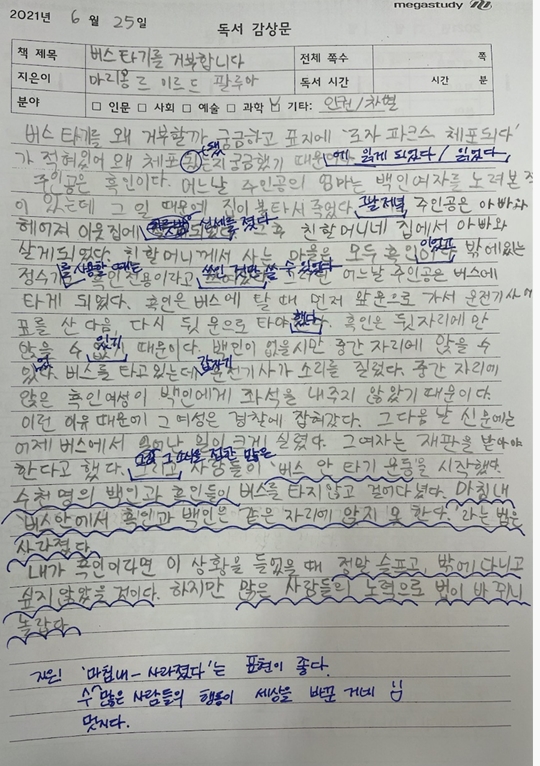 megastudy
2021년 6월 25일 독서 감상문
책 제목 버스 타기를 거부합니다 전체 쪽수 쪽
지은이 마리옹 르 이르드 팔루아 독서 시간 시간 분
분야 □ 인문 □ 사회 □ 예술 □ 과학 ☑ 기타: 인권/차별
버스 타기를 왜 거부할까 궁금하고 표지에 '로자 파크스 체포되다'
가 적혀있어 왜 체포됐는지 궁금했기 때문에 읽게 되었다/읽었다.
주인공은 흑인이다. 어느날 주인공의 엄마는 백인여자를 노려본적
이 있는데 그 일 때문에 집이 불타서 죽었다. 그날 저녁 주인공은 아빠와
헤어져 이웃집에 신세를 졌다. 그 후 친할머니네 집에서 아빠와
살게되었다. 친할머니께서 사는 마을은 모두 흑인이었고 밖에있는
정수기를 사용할 때도 흑인 전용이라고 쓰인 것만 쓸 수 있었다. 어느날 주인공은 버스에
타게 되었다. 흑인은 버스에 탈 때 먼저 앞문으로 가서 운전기사에
표를 산 다음 다시 뒷문으로 타야했다. 흑인은 뒷자리에만
앉을 수 있기 때문이다. 백인이 없을시만 중간 자리에 앉을 수
있었다. 버스를 타고있는데 갑자기 운전기사가 소리를 질렀다. 중간 자리에
앉은 흑인 여성이 백인에게 좌석을 내주지 않았기 때문이다.
이런 이유 때문에 그 여성은 경찰에 잡혀갔다. 그 다음 날 신문에는
어제 버스에서 일어난 일이 크게 실렸다. 그 여자는 재판을 받아야
한다고 했다. 그 소식을 접한 많은 사람들이 '버스 안 타기 운동을 시작했다.
수천 명의 백인과 흑인들이 버스를 타지않고 걸어다녔다. 마침내
'버스안에서 흑인과 백인은 같은 자리에 앉지 못 한다.'라는 법은
사라졌다.
내가 흑인이라면 이 상황을 들었을 때 정말 슬프고, 밖에 다니고
싶지 않았을 것이다. 하지만 많은 사람들의 노력으로 법이 바뀌니
놀랍다.
지은! '마침내-사라졌다'는 표현이 좋다.
수많은 사람들의 행동이 세상을 바꾼 거네
멋지다.